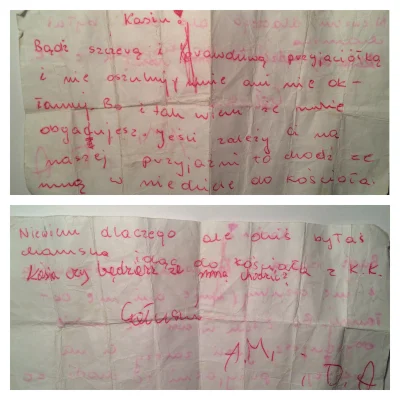 Kasiu
Bądź szczerą i prawdziwą przyjaciółką
i nie oszukuj mnie ani nie ok-
łamuj. Bo i tak wiem że mnie
obgadujesz, jeśli zależy Ci na
naszej przyjaźni to chodź ze
mną w niedziele do kościoła.
Niewiem dlaczego ale dziś byłaś
chamska idąc do kościoła z K.K.
Kasia czy będziesz ze mną chodzić?
A.M.
D.A